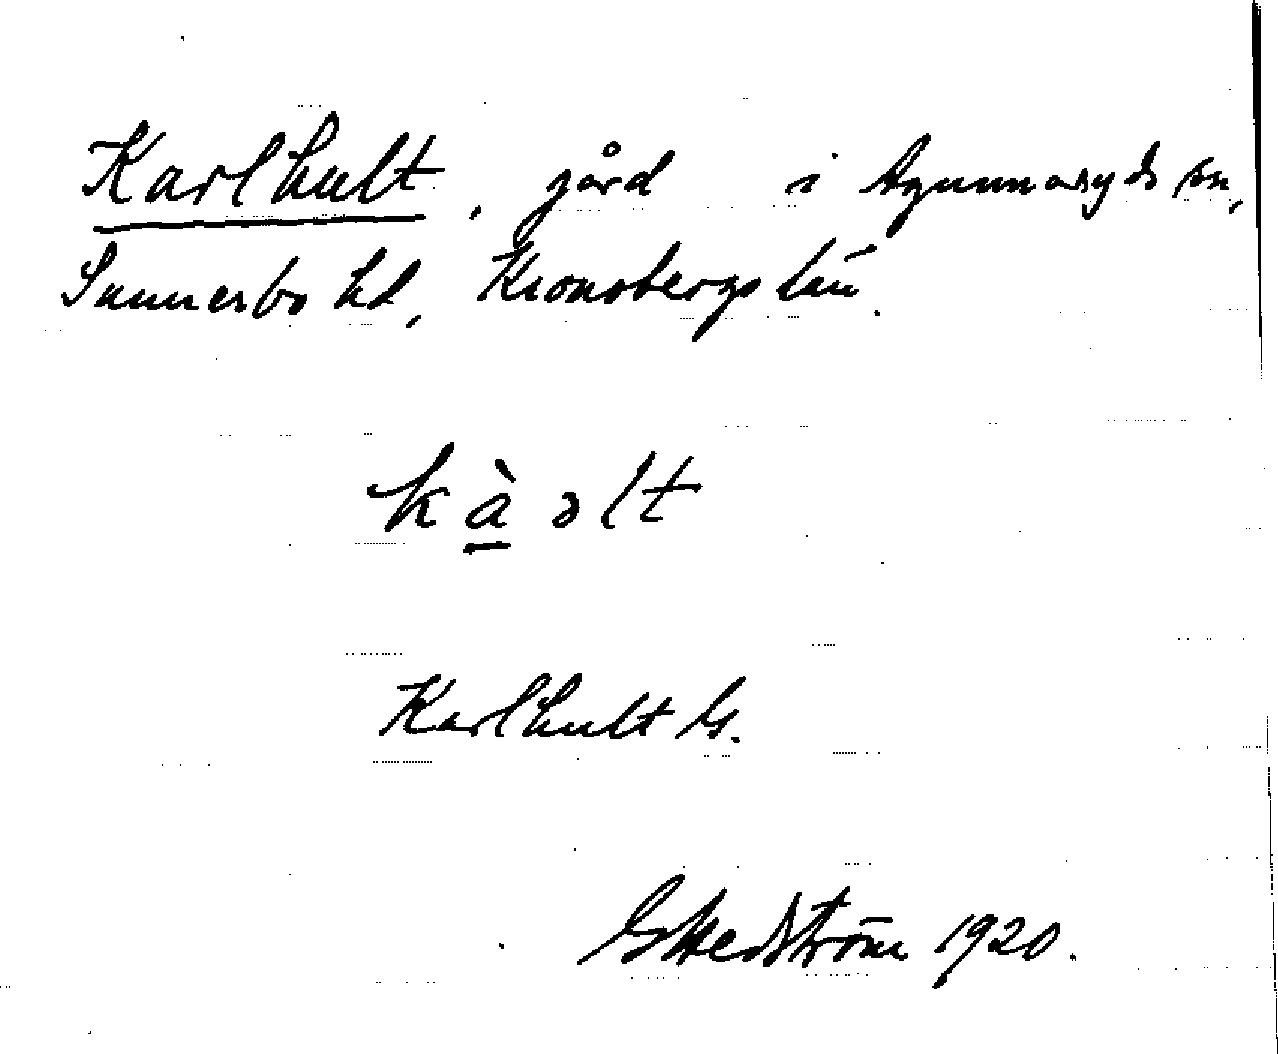 Karlhult, gård i Agunnaryds sn,
Sunnerbo hd, Kronobergs län.
kàəlt
Karlhult G.
G Hedström 1920.